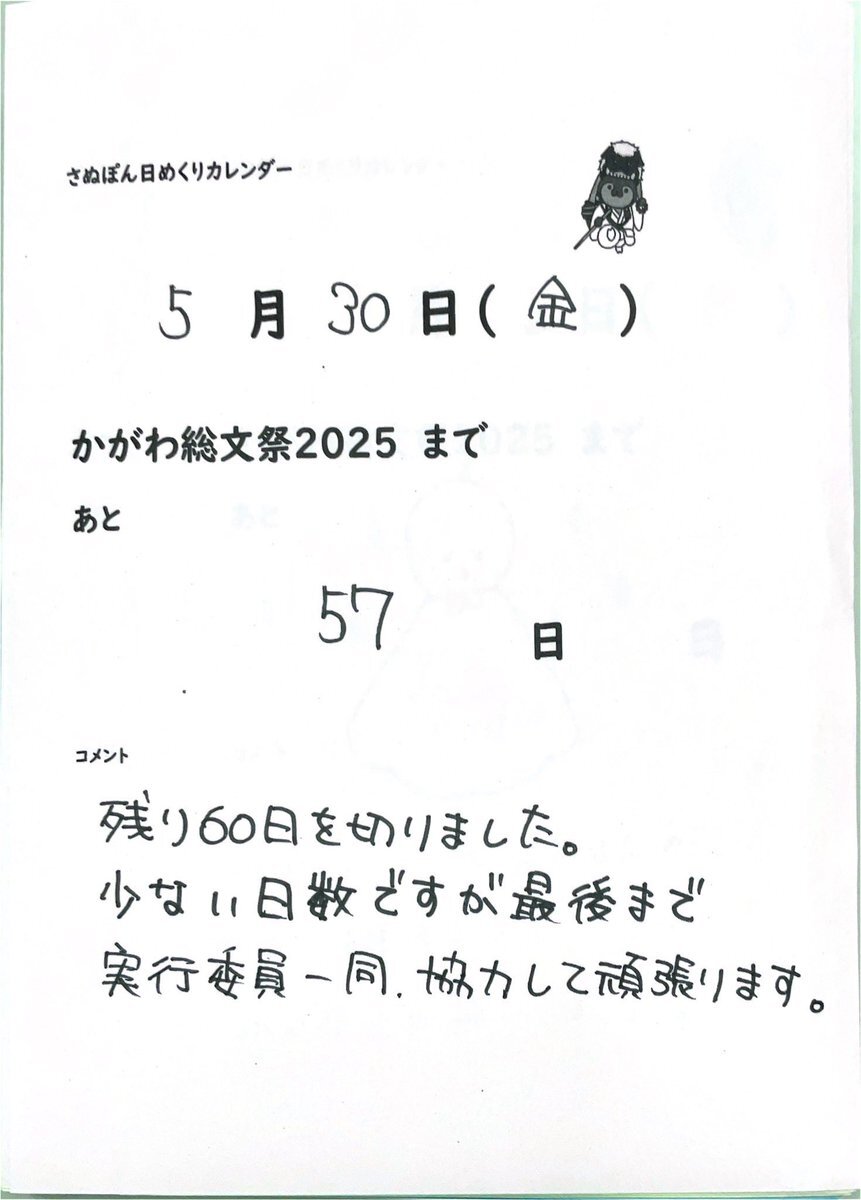 さぬぽん日めくりカレンダー
5月30日(金)
かがわ総文祭2025 まで
あと
57日
コメント
残り60日を切りました。
少ない日数ですが最後まで
実行委員一同、協力して頑張ります。